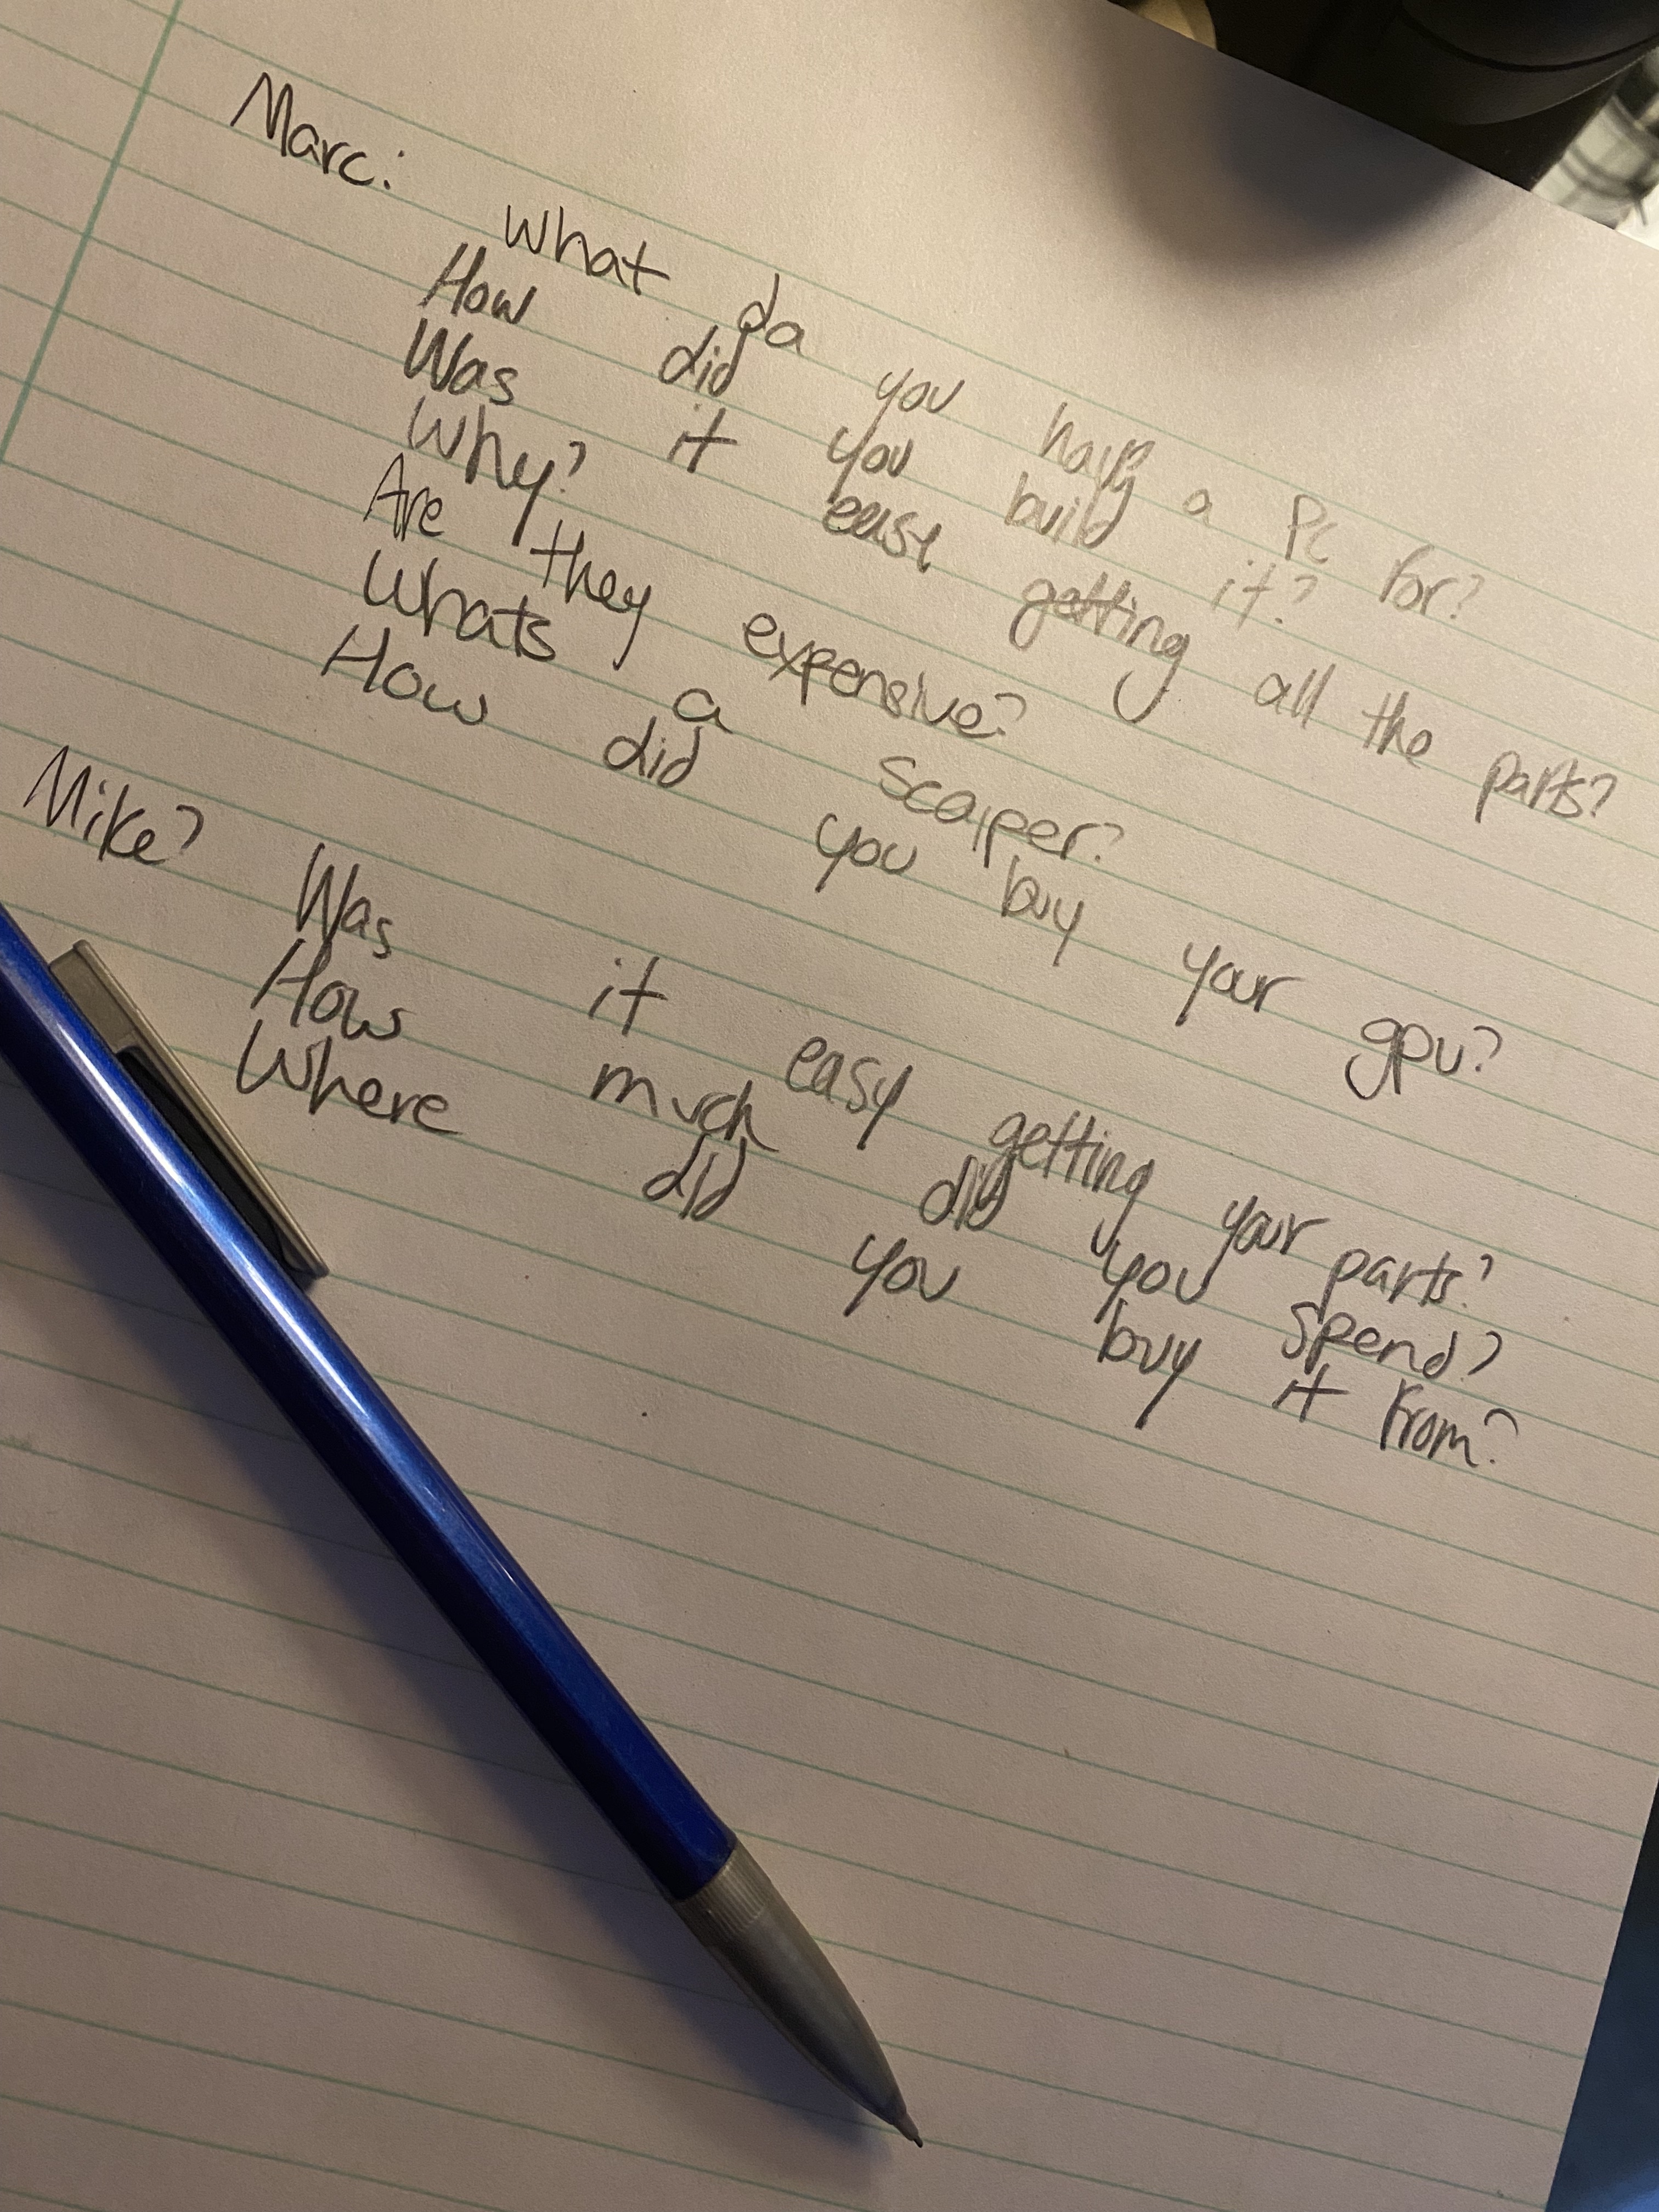 Marc:
What da you have a PC for?
How did you build it?
Was it ease getting all the parts?
Why?
Are they expensive?
Whats a scalper?
How did you buy your gpu?
Mike?
Was it easy getting your parts?
How much did you spend?
Where did you buy it from?